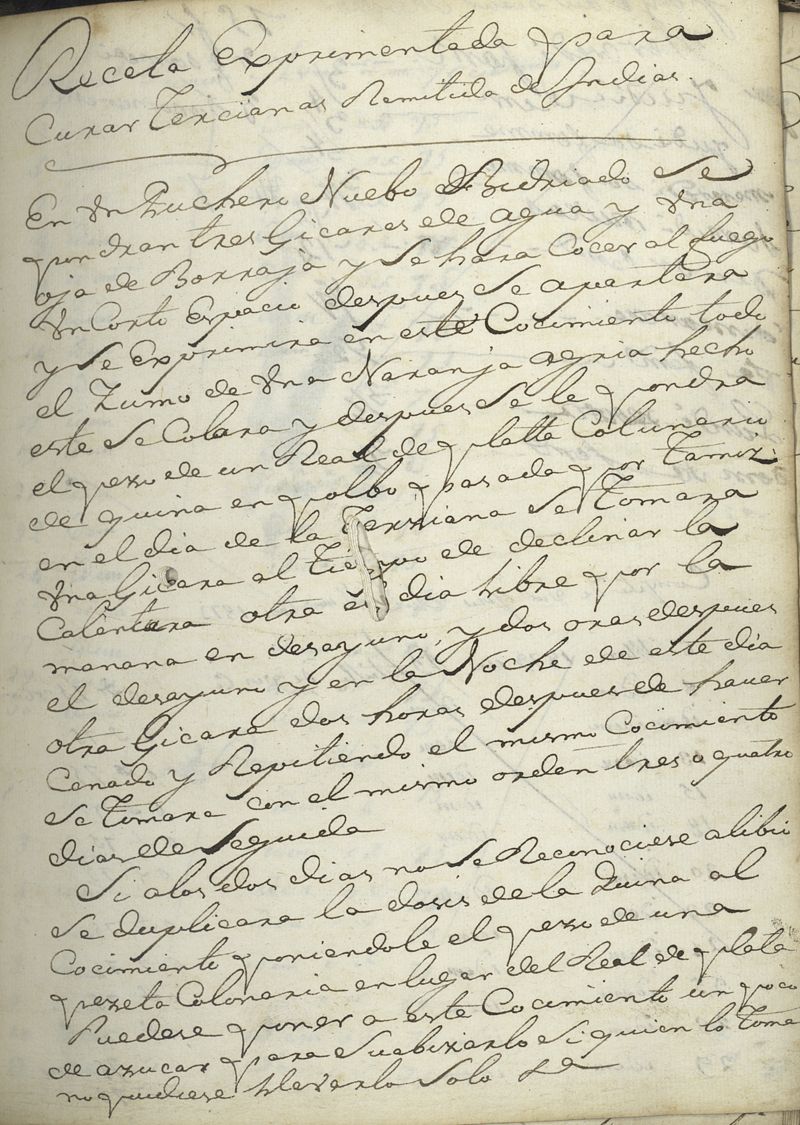 Receta Exprimentada para
Curar Tercianas Remitida de Indias.
En Vn Puchero Nuebo Bidriado se
pondran tres Gicares de agua y Vna
oja de Borraja y se hara Cocer al fuego
Vn Corto Espacio despues se apartara
y se Exprimira en este Cocimiento todo
el Zumo de Vna Naranja agria hecho
este se Colara y despues se le pondra
el peso de un Real de platta Colunario
de quina en polbo pasada por Tamiz.
en el dia de la Terziana se Tomara
Vna Gicara al Tiempo de declinar la
Calentura otra el dia libre por la
manana en desayuno, y dos oras despues
el desayuno y en la Noche de este dia
otra Gicara dos horas despues de haver
Cenado y Repitiendo el mismo Cocimiento
se Tomara con el mismo orden tres o quatro
dias de Seguida
Si a los dos dias no se Reconociese alibio
se duplicara la dosis de la Quina al
Cocimiento poniendole el peso de una
peseta Colonaria en lugar del Real de plata
Puedese poner a este Cocimiento un poco
de azucar para Suabizarlo si quien lo Toma
no pudiese llevarlo Solo